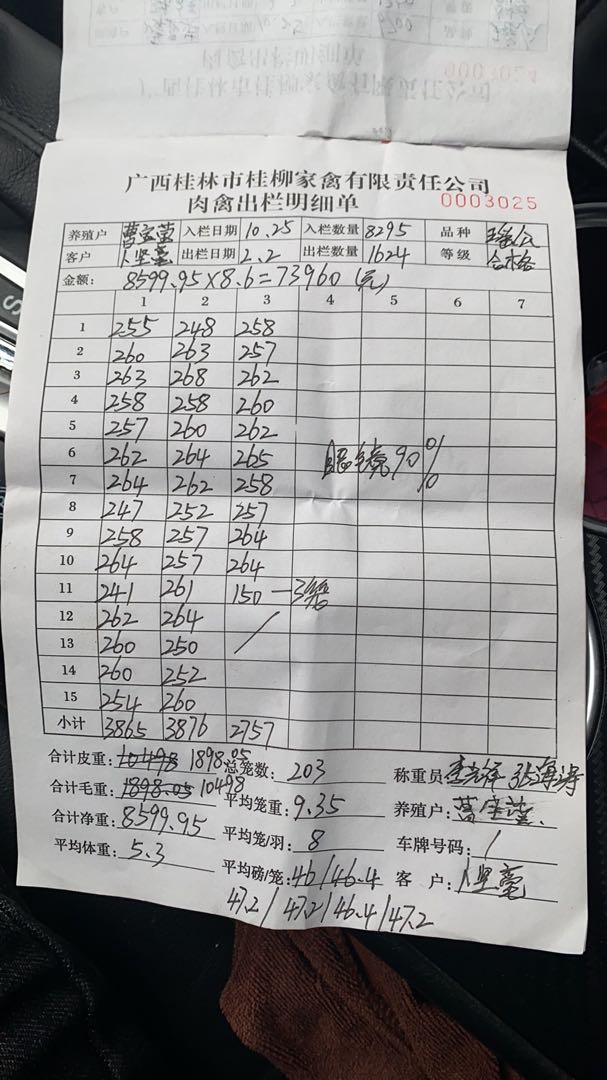 0003024
广西桂林市桂柳家禽有限责任公司
肉禽出栏明细单 0003025
养殖户 入栏日期 10.25 入栏数量 8295 品种
客户 出栏日期 2.2 出栏数量 1624 等级 合格
金额: 8599.95×8.6=73960(元)
1 2 3 4 5 6 7
1 255 248 258
2 260 263 257
3 263 268 262
4 258 258 260
5 257 260 262
6 262 264 265 90%
7 264 262 258
8 247 252 257
9 258 257 264
10 264 257 264
11 241 261 150 — 3笼
12 262 264
13 260 250
14 260 252
15 254 260
小计 3865 3876 2757
合计皮重: 10498 1898.05 总笼数: 203 称重员 张海涛
合计毛重: 1898.05 10498 平均笼重: 9.35 养殖户:
合计净重: 8599.95 平均笼/羽: 8 车牌号码: /
平均体重: 5.3 平均磅/笼: 46/46.4 客户:
47.2/47.2/46.4/47.2